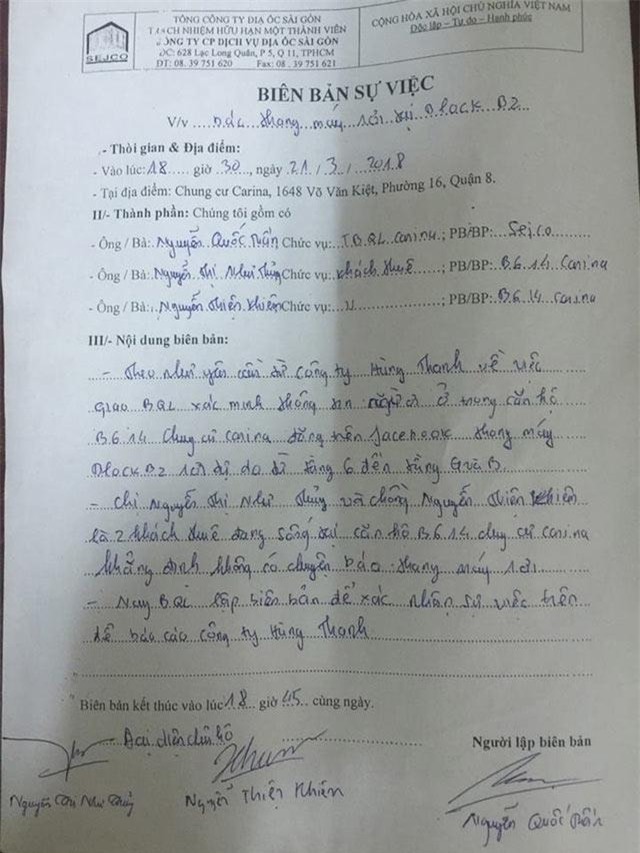 SEJCO
TỔNG CÔNG TY ĐỊA ỐC SÀI GÒN
TRÁCH NHIỆM HỮU HẠN MỘT THÀNH VIÊN
CÔNG TY CP DỊCH VỤ ĐỊA ỐC SÀI GÒN
ĐC: 628 Lạc Long Quân, P 5, Q 11, TPHCM
ĐT: 08. 39 751 620 Fax: 08. 39 751 621
CỘNG HÒA XÃ HỘI CHỦ NGHĨA VIỆT NAM
Độc lập - Tự do - Hạnh phúc
BIÊN BẢN SỰ VIỆC
V/v thang máy rơi tại Block B2
I/- Thời gian & Địa điểm:
- Vào lúc: 18 giờ 30, ngày 21 / 3 / 2018
- Tại địa điểm: Chung cư Carina, 1648 Võ Văn Kiệt, Phường 16, Quận 8.
II/- Thành phần: Chúng tôi gồm có
- Ông / Bà: Nguyễn Quốc Tuấn Chức vụ: T.BQL Carina; PB/BP: Sejco
- Ông / Bà: Nguyễn Thị Như Thủy Chức vụ: Khách thuê; PB/BP: B6.14 Carina
- Ông / Bà: Nguyễn Thiện Khiên Chức vụ: ; PB/BP: B6.14 Carina
III/- Nội dung biên bản:
- Theo như yêu cầu từ công ty Hùng Thanh về việc
giao BQL xác minh thông tin người ở trong căn hộ
B6.14 Chung cư Carina đăng trên facebook thang máy
Block B2 rơi tự do từ tầng 6 đến tầng G và B.
- Chị Nguyễn Thị Như Thủy và chồng Nguyễn Thiện Khiên
là 2 khách thuê đang sống tại căn hộ B6.14 chung cư Carina
khẳng định không có chuyện báo thang máy rơi.
- Nay BQL lập biên bản để xác nhận sự việc trên
để báo cáo công ty Hùng Thanh.
Biên bản kết thúc vào lúc 18 giờ 45 cùng ngày.
Đại diện chủ hộ
Người lập biên bản
Nguyễn Thị Như Thủy
Nguyễn Thiện Khiên
Nguyễn Quốc Tuấn